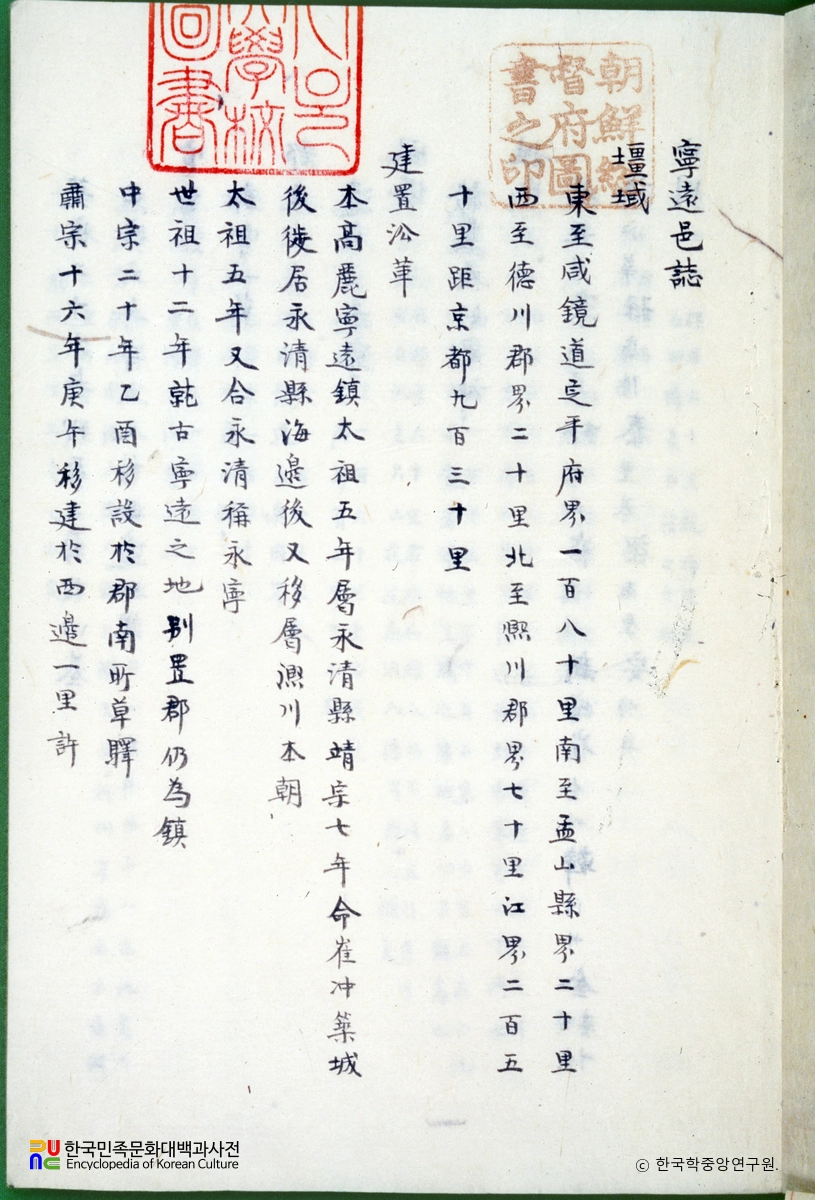 寧遠邑誌
壃域
東至咸鏡道定平府界一百八十里南至孟山縣界二十里
西至德川郡界二十里北至熙川郡界七十里江界二百五
十里距京都九百三十里
建置沿革
本高麗寧遠鎮太祖五年層永清縣靖宗七年命崔冲築城
後徙居永清縣海邊後又移層凞川本朝
太祖五年又合永清稱永寧
世祖十二年就古寧遠之地別置郡仍為鎮
中宗二十年乙酉移設於郡南町草驛
肅宗十六年庚午移建於西邊一里許
朝鮮總
督府圖
書之印
學校
圖書
한국민족문화대백과사전
Encyclopedia of Korean Culture
© 한국학중앙연구원.